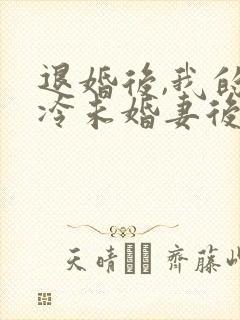 退婚後,我的
冷未婚妻後
天晴 齊藤山